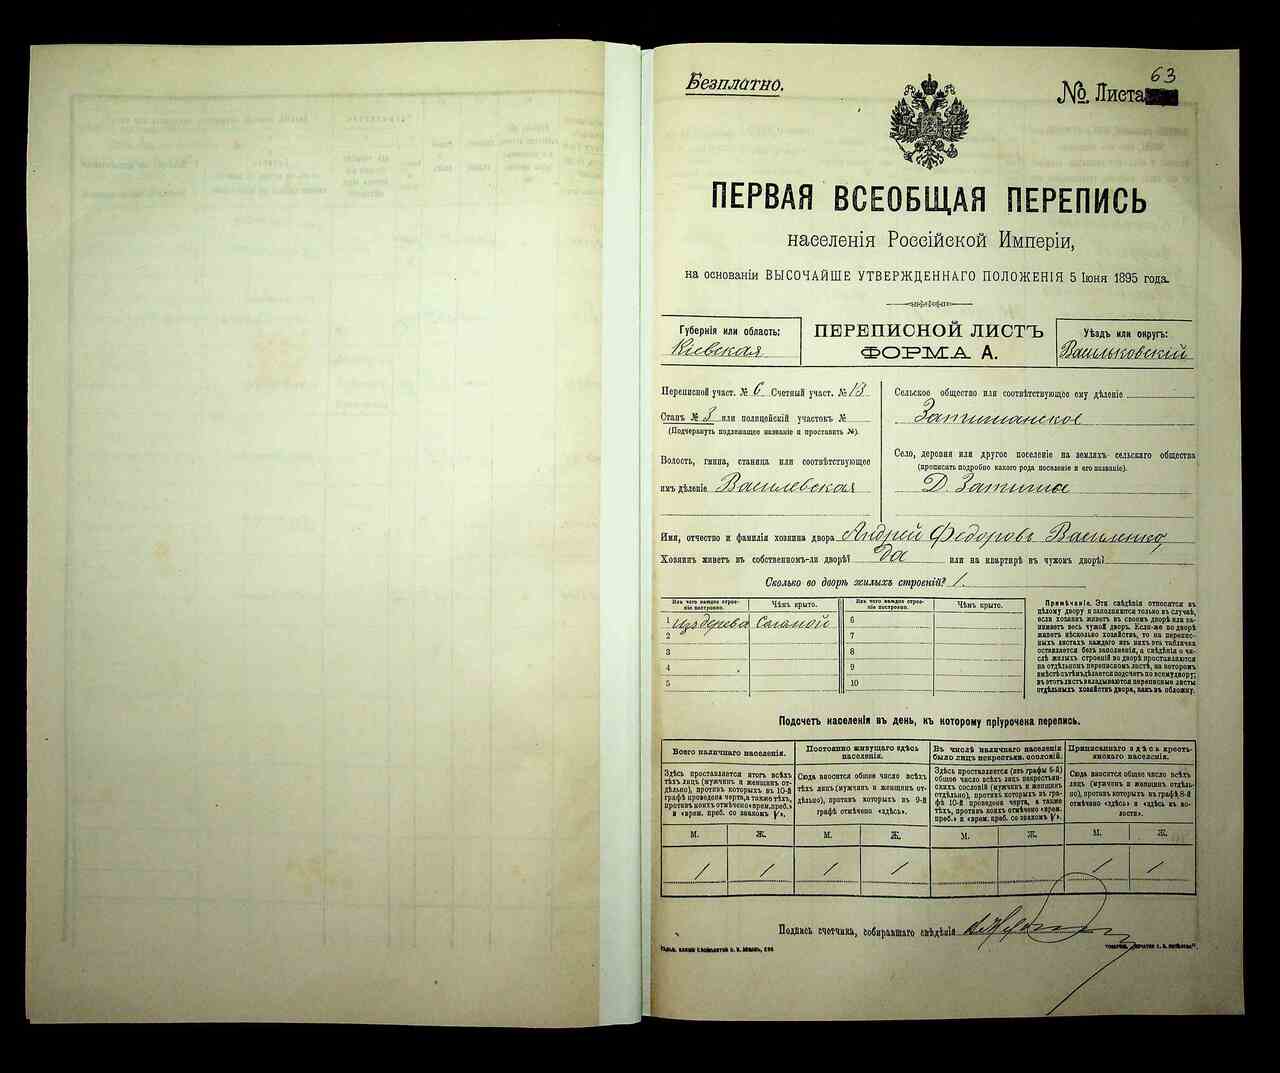 Безплатно.
63
№ Листа
ПЕРВАЯ ВСЕОБЩАЯ ПЕРЕПИСЬ
населенія Россійской Имперіи,
на основаніи ВЫСОЧАЙШЕ УТВЕРЖДЕННАГО ПОЛОЖЕНІЯ 5 Іюня 1895 года.
Губернія или область:
Кіевская
ПЕРЕПИСНОЙ ЛИСТЪ
ФОРМА А.
Уѣздъ или округъ:
Васильковскій
Переписной участ. № 6 Счетный участ. № 13
Станъ № 3 или полицейскій участокъ №
(Подчеркнуть подлежащее названіе и проставить №).
Волость, гмина, станица или соотвѣтствующее
имъ дѣленіе Василевская
Сельское общество или соотвѣтствующее ему дѣленіе
Затишанское
Село, деревня или другое поселеніе на земляхъ сельскаго общества
(прописать подробно какого рода поселеніе и его названіе).
Д. Затишье
Имя, отчество и фамилія хозяина двора Андрей Федоровъ Василенко
Хозяинъ живетъ въ собственномъ-ли дворѣ? Да или на квартирѣ въ чужомъ дворѣ?
Сколько во дворѣ жилыхъ строеній? 1.
Изъ чего каждое строеніе построено. Чѣмъ крыто. Изъ чего каждое строеніе построено. Чѣмъ крыто.
1 Изъ дерева Соломой 6
2 7
3 8
4 9
5 10
Примѣчаніе. Эти свѣдѣнія относятся къ
цѣлому двору и заполняются только въ случаѣ,
если хозяинъ живетъ въ своемъ дворѣ или занимаетъ
весь чужой дворъ. Если-же во дворѣ
живетъ нѣсколько хозяйствъ, то на переписныхъ
листахъ каждаго изъ нихъ эта табличка
оставляется безъ заполненія, а свѣдѣнія о числѣ
жилыхъ строеній во дворѣ проставляются
на отдѣльномъ переписномъ листѣ, на которомъ
вмѣстѣ съ тѣмъ дѣлается подсчетъ по всему двору;
въ этотъ листъ вкладываются переписные листы
отдѣльныхъ хозяйствъ двора, какъ въ обложку.
Подсчетъ населенія въ день, къ которому пріурочена перепись.
Всего наличнаго населенія.
Здѣсь проставляется итогъ всѣхъ
тѣхъ лицъ (мужчинъ и женщинъ отдѣльно),
противъ которыхъ въ 10-й
графѣ проведена черта, а также тѣхъ,
противъ коихъ отмѣчено «врем. преб.»
и «врем. преб. со знакомъ V».
Постоянно живущаго здѣсь
населенія.
Сюда вносится общее число всѣхъ
тѣхъ лицъ (мужчинъ и женщинъ отдѣльно),
противъ которыхъ въ 9-й
графѣ отмѣчено «здѣсь».
Въ числѣ наличнаго населенія
было лицъ некрестьянск. сословій.
Здѣсь проставляется (изъ графы 6-й)
общее число всѣхъ лицъ некрестьянскихъ
сословій (мужчинъ и женщинъ
отдѣльно), противъ которыхъ въ графѣ
10-й проведена черта, а также
тѣхъ, противъ коихъ отмѣчено «врем.
преб.» и «врем. преб. со знакомъ V».
Приписаннаго здѣсь крестьянскаго
населенія.
Сюда вносится общее число всѣхъ
лицъ (мужчинъ и женщинъ отдѣльно),
противъ которыхъ въ графѣ 8-й
отмѣчено «здѣсь» и «здѣсь въ волости».
М. Ж. М. Ж. М. Ж. М. Ж.
1 1 1 1 1 1
Подпись счетчика, собиравшаго свѣдѣнія